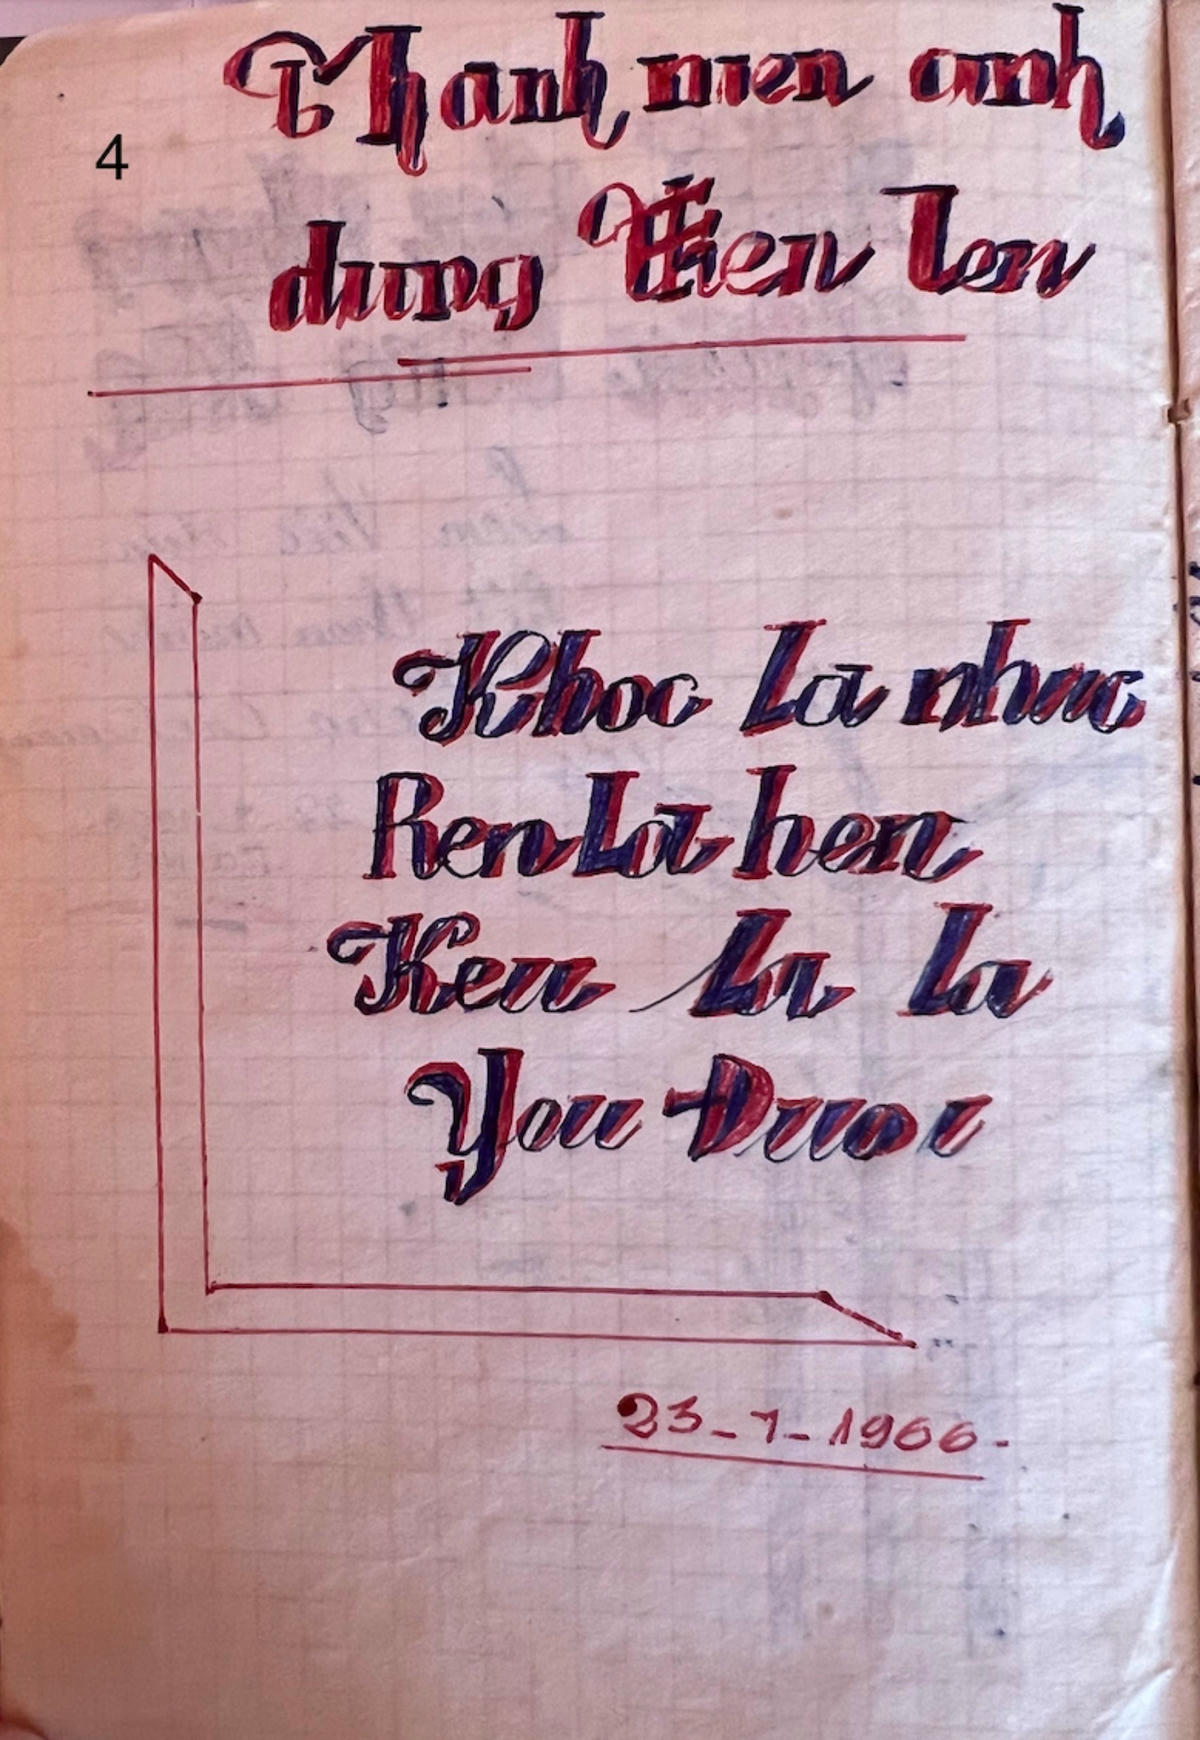 4
Thanh nien anh
dung Tien len
Khoc La nhuc
Ren La hen
Keu La La
You Đuoi
23-7-1966-